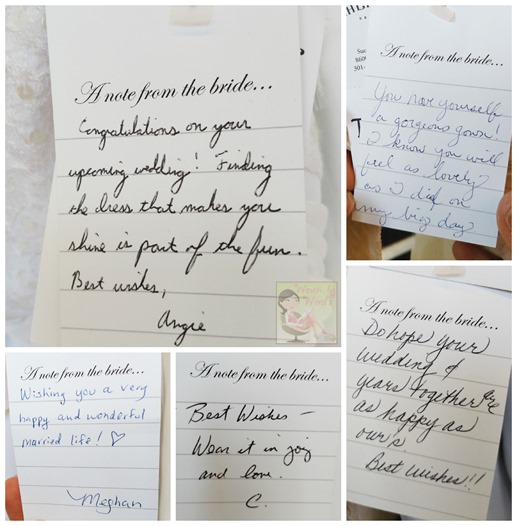 A note from the bride...
Congratulations on your
upcoming wedding! Finding
the dress that makes you
shine is part of the fun.
Best wishes,
Angie
A note from the bride...
You have yourself
a gorgeous gown!
I know you will
feel as lovely
as I did on
my big day
A note from the bride...
Wishing you a very
happy and wonderful
married life! ♡
Meghan
A note from the bride...
Best Wishes –
Wear it in joy
and love.
C.
A note from the bride...
Do hope your
wedding &
years together are
as happy as
our's.
Best wishes!!